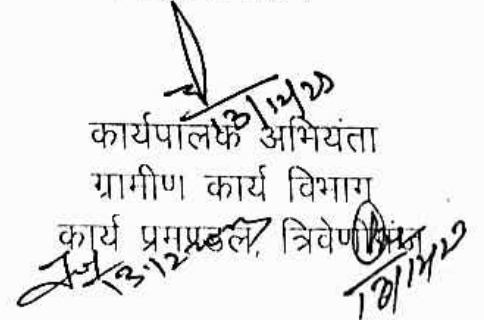 13/12/23
कार्यपालक अभियंता
ग्रामीण कार्य विभाग
कार्य प्रमण्डल, त्रिवेणीगंज